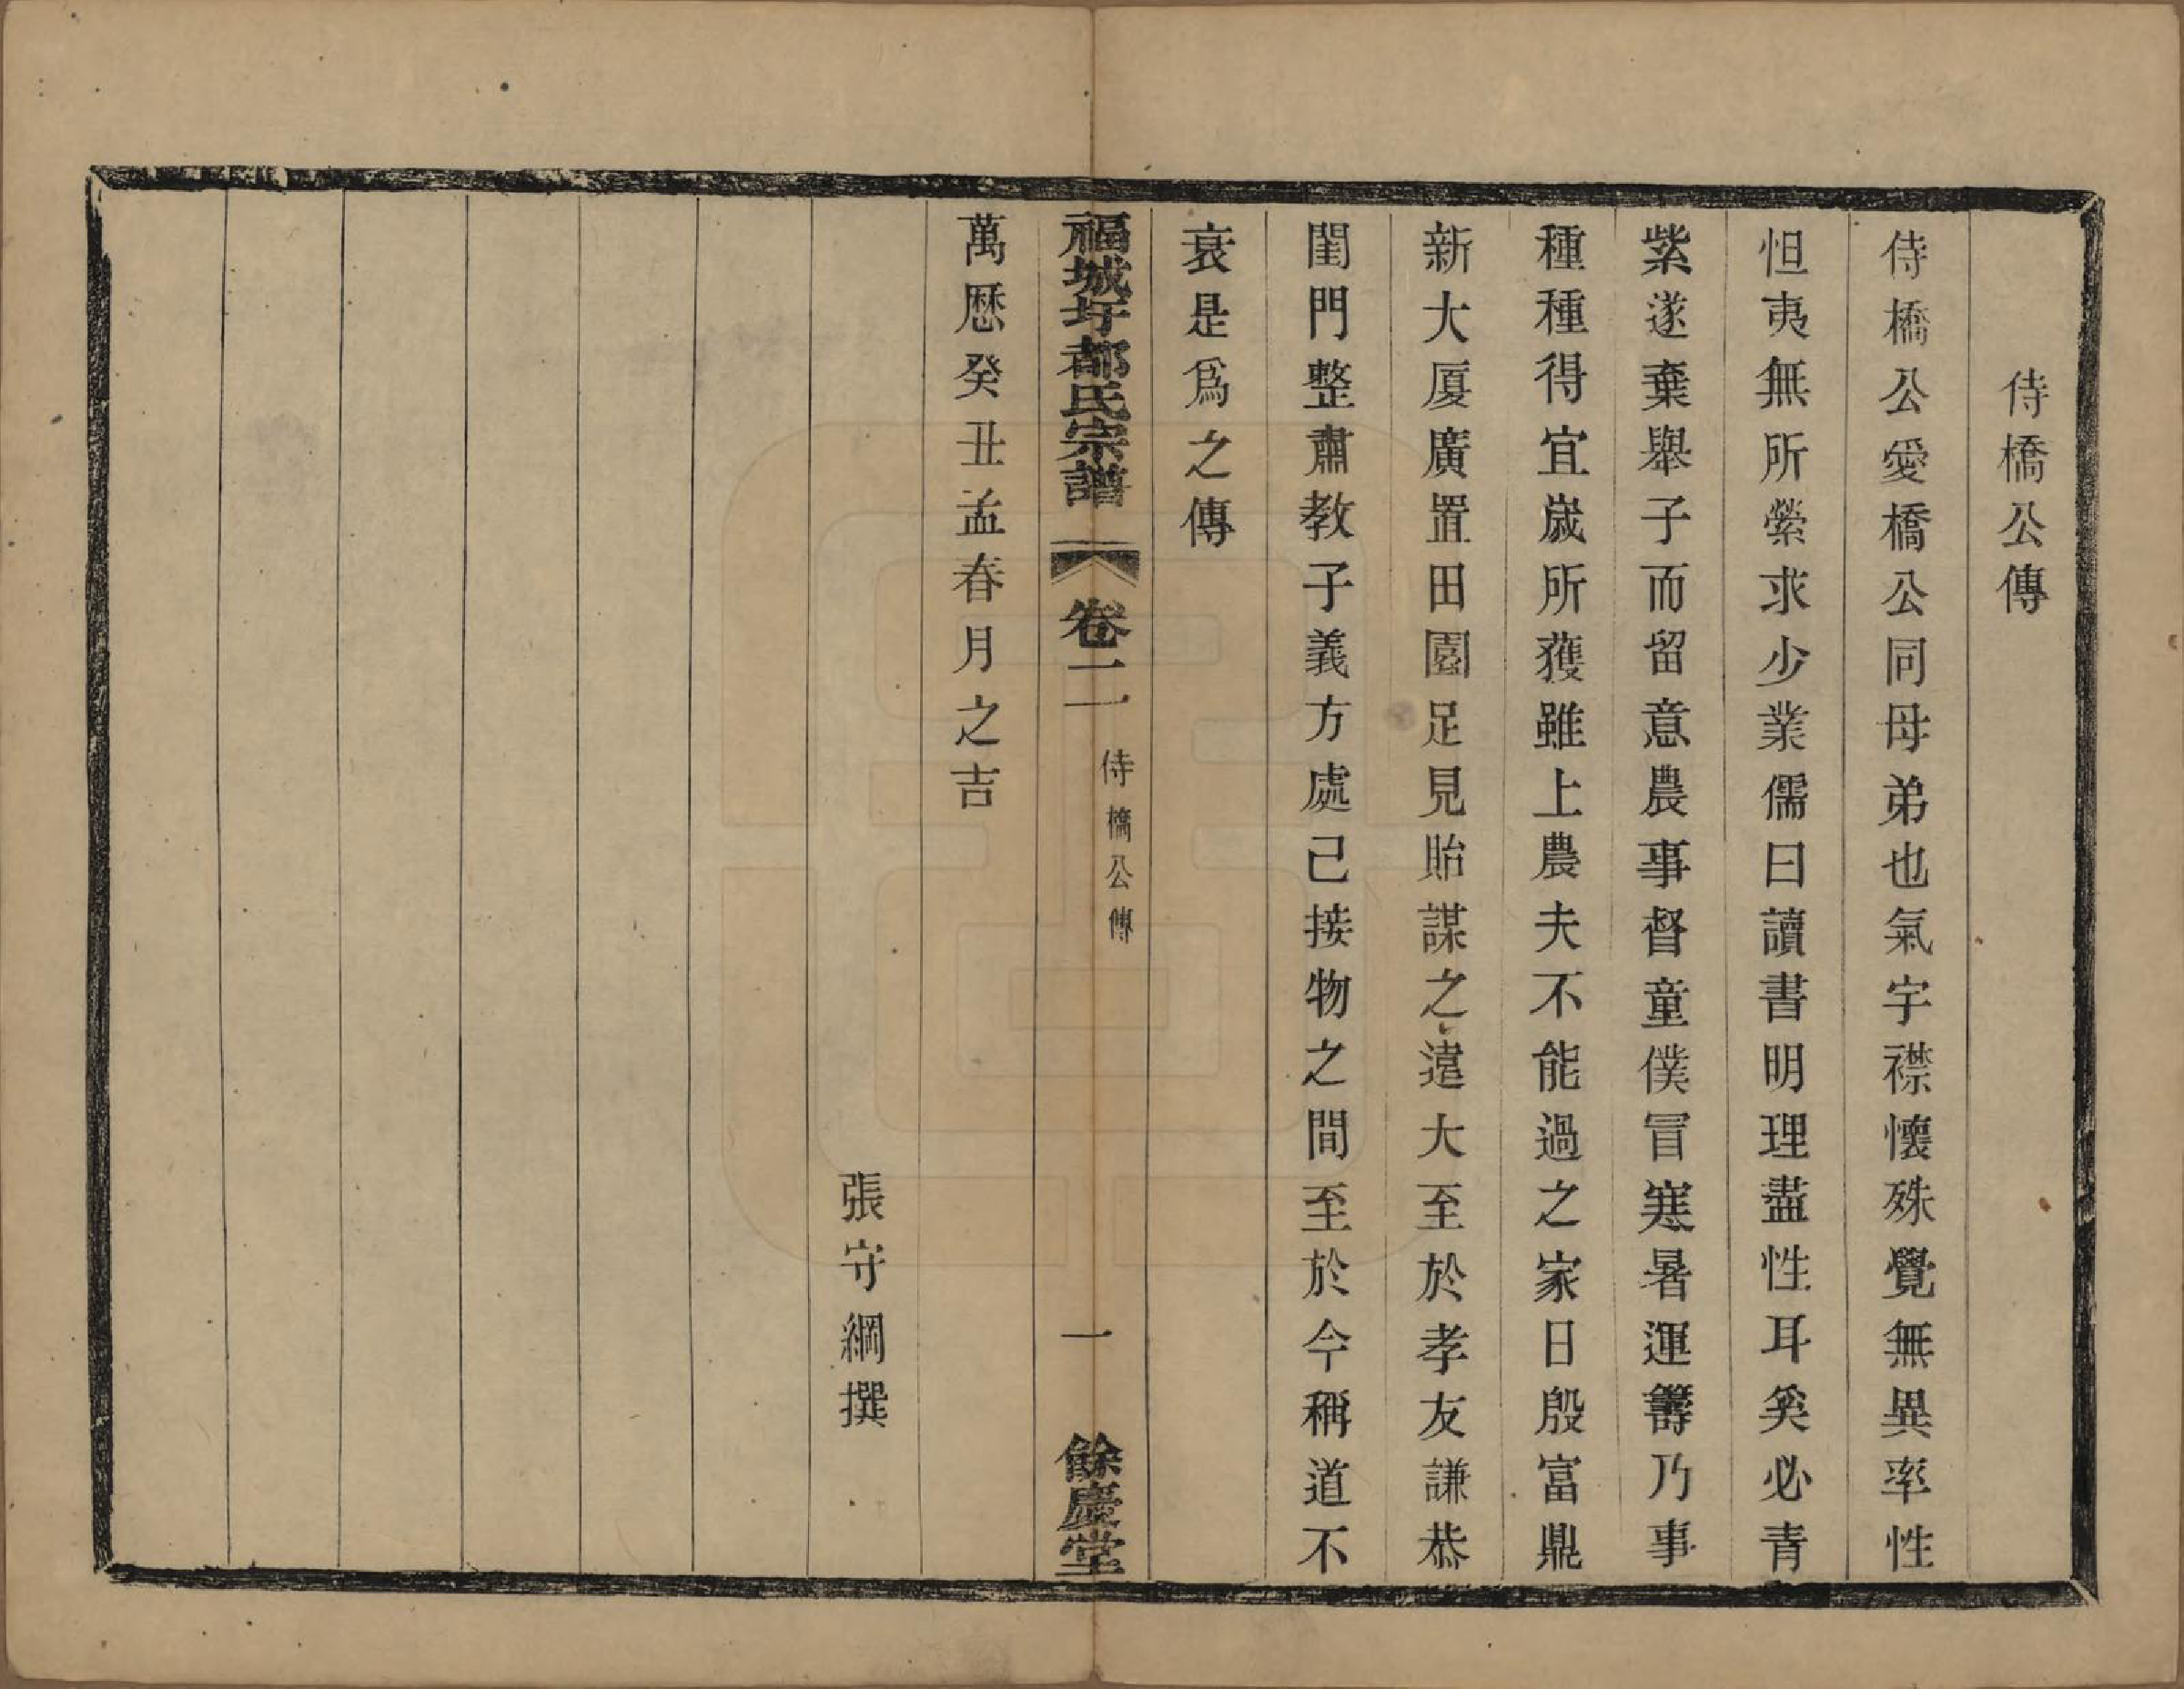 侍橋公傳
侍橋公愛橋公同母弟也氣宇襟懷殊覺無異率性
怛夷無所縈求少業儒曰讀書明理盡性耳奚必青
紫遂棄舉子而留意農事督童僕冒寒暑運籌乃事
種種得宜歲所獲雖上農夫不能過之家日殷富鼎
新大厦廣置田園足見貽謀之遠大至於孝友謙恭
閨門整肅教子義方處己接物之間至於今稱道不
衰是爲之傳
福城圩都氏宗譜 卷二 侍橋公傳 一 餘慶堂
萬厯癸丑孟春月之吉
張守綱撰